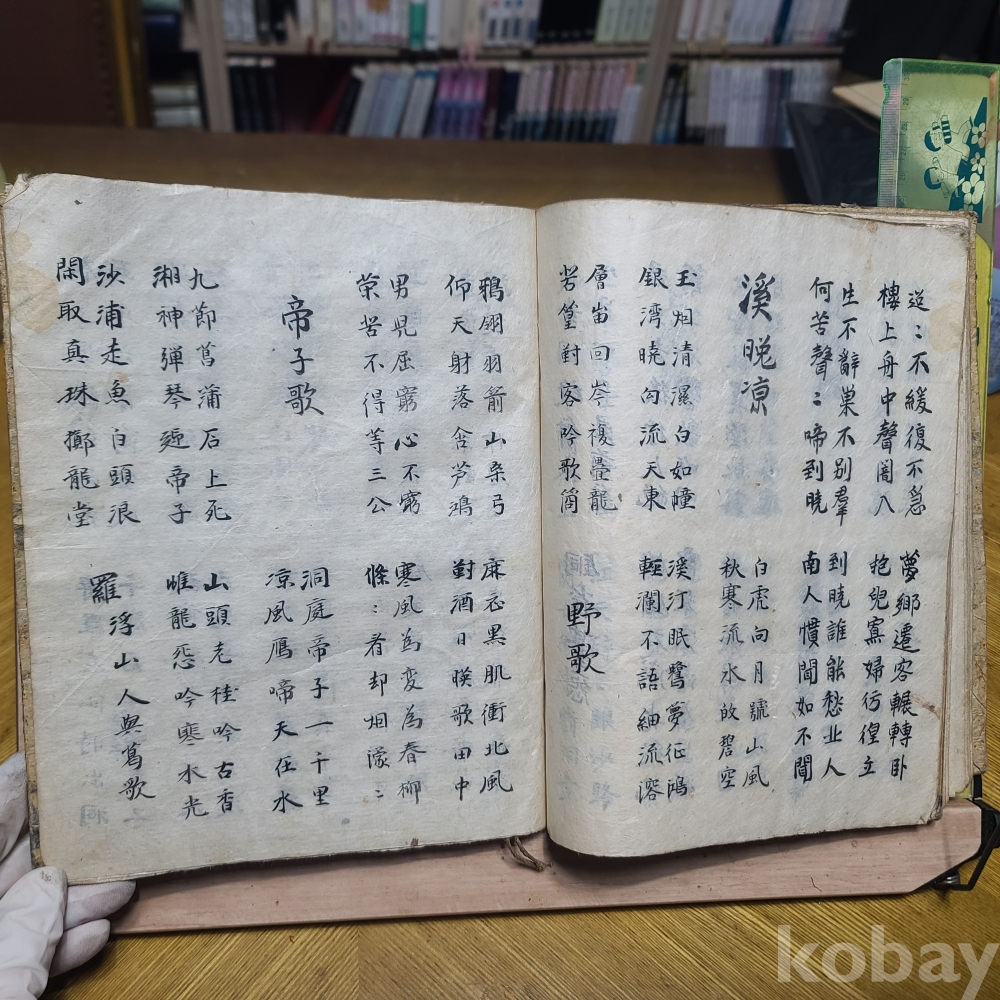 迢〻不緩復不急
樓上舟中聲闇入
夢鄉遷客輾轉卧
抱兒寡婦彷徨立
生不辭巢不別羣
何苦聲〻啼到曉
到曉誰能愁北人
南人慣聞如不聞
溪晚凉
白虎向月號山風
秋寒流水放碧空
玉烟清濕白如幢
銀湾曉向流天東
溪汀眠鷺夢征鴻
輕瀾不語細流溶
層峀回岑複疊龍
苦篁對客吟歌筒
野歌
鴉翎羽箭山桑弓
仰天射落含芦鴻
麻衣黑肌衝北風
對酒日暎歌田中
男兒屈窮心不窮
榮苦不得等三公
寒風為変為春柳
條〻看却烟濛〻
帝子歌
洞庭帝子一千里
凉風鴈啼天在水
九節菖蒲石上死
湘神彈琴迎帝子
山頭老桂吟古香
雌龍怨吟寒水光
沙浦走魚白頭浪
閑取真珠擲龍堂
羅浮山人與葛歌
kobay